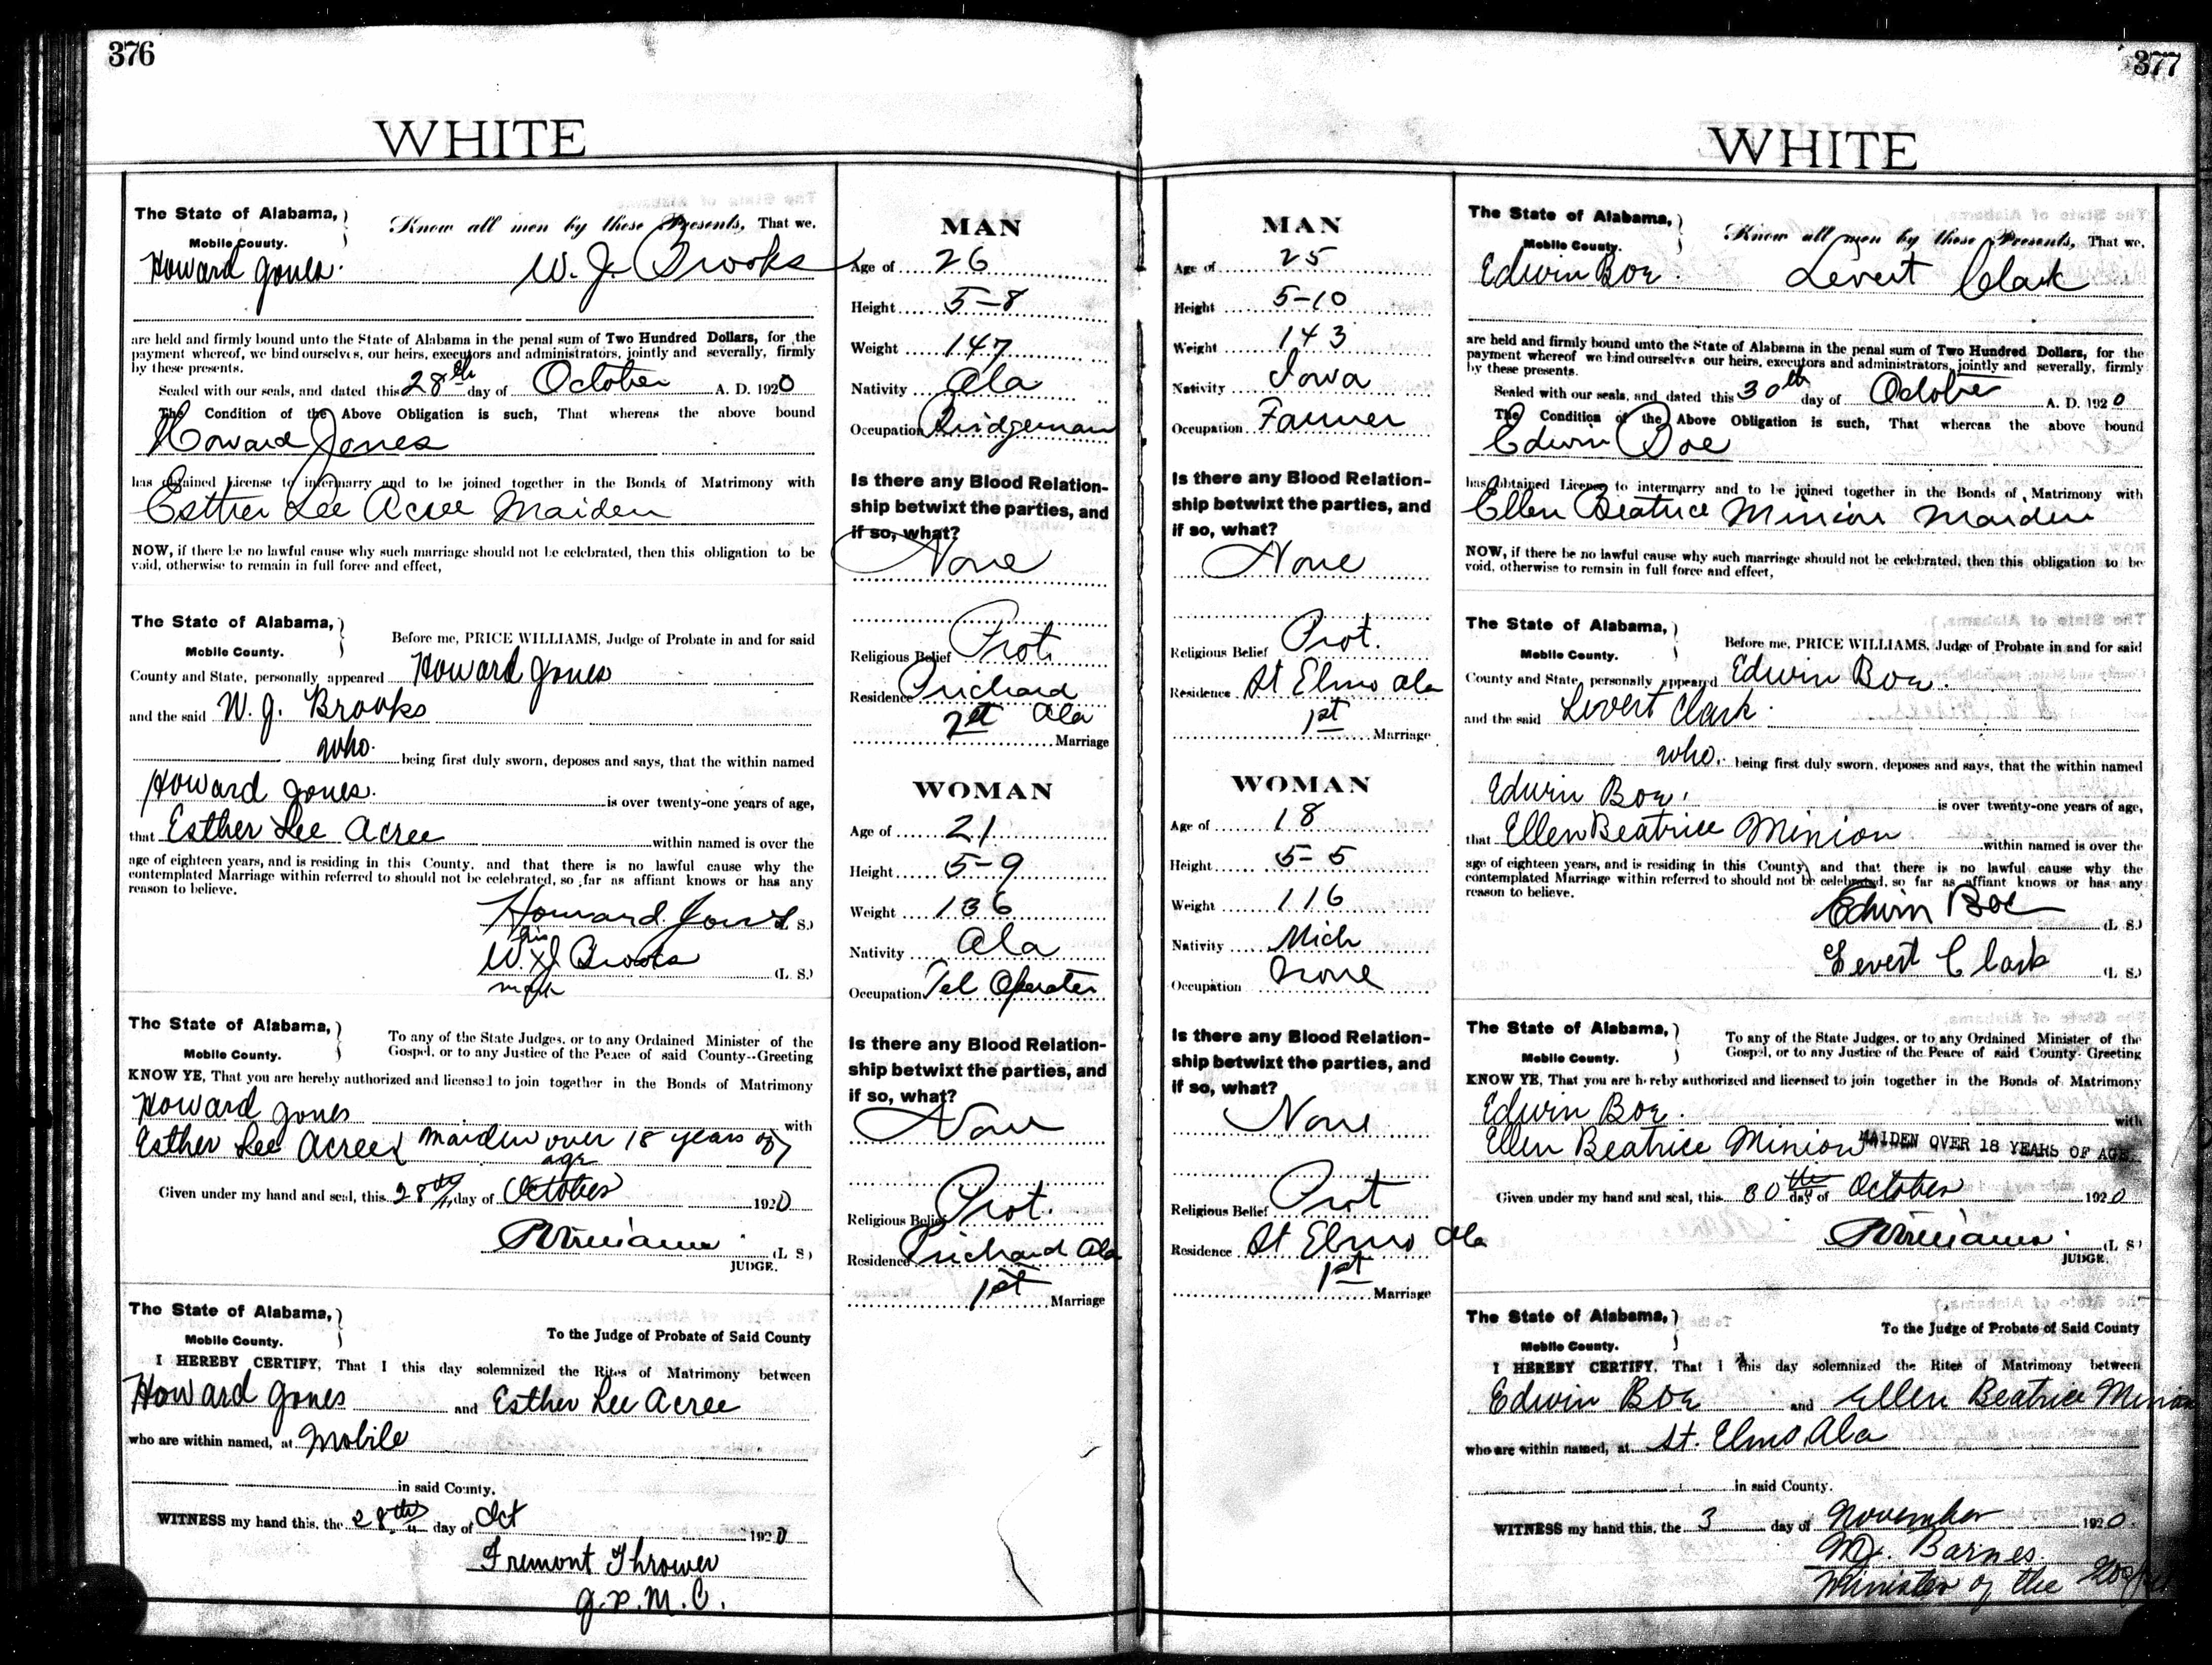 376
WHITE
The State of Alabama,
Mobile County.
Know all men by these Presents, That we,
Howard Jones. W. J. Brooks
are held and firmly bound unto the State of Alabama in the penal sum of Two Hundred Dollars, for the
payment whereof, we bind ourselves, our heirs, executors and administrators, jointly and severally, firmly
by these presents.
Sealed with our seals, and dated this 28th day of October A. D. 1920
The Condition of the Above Obligation is such, That whereas the above bound
Howard Jones
has obtained License to intermarry and to be joined together in the Bonds of Matrimony with
Esther Lee Acree Maiden
NOW, if there be no lawful cause why such marriage should not be celebrated, then this obligation to be
void, otherwise to remain in full force and effect,
The State of Alabama,
Mobile County.
Before me, PRICE WILLIAMS, Judge of Probate in and for said
County and State, personally appeared Howard Jones
and the said W. J. Brooks
who. being first duly sworn, deposes and says, that the within named
Howard Jones. is over twenty-one years of age,
that Esther Lee Acree within named is over the
age of eighteen years, and is residing in this County, and that there is no lawful cause why the
contemplated Marriage within referred to should not be celebrated, so far as affiant knows or has any
reason to believe.
Howard Jones (L. S.)
his
W. X J Brooks (L. S.)
mark
The State of Alabama,
Mobile County.
To any of the State Judges, or to any Ordained Minister of the
Gospel, or to any Justice of the Peace of said County--Greeting
KNOW YE, That you are hereby authorized and licensed to join together in the Bonds of Matrimony
Howard Jones with
Esther Lee Acree (maiden over 18 years of
age
Given under my hand and seal, this 28th day of October 1920
PWilliams (L. S)
JUDGE.
The State of Alabama,
Mobile County.
To the Judge of Probate of Said County
I HEREBY CERTIFY, That I this day solemnized the Rites of Matrimony between
Howard Jones and Esther Lee Acree
who are within named, at Mobile
in said County.
WITNESS my hand this, the 28th day of Oct 1920
Fremont Thrower
J. P. M. C.
MAN
Age of 26
Height 5-8
Weight 147
Nativity Ala
Occupation Bridgeman
Is there any Blood Relation-
ship betwixt the parties, and
if so, what?
None
Religious Belief Prot.
Residence Prichard
Ala
2st Marriage
WOMAN
Age of 21
Height 5-9
Weight 136
Nativity Ala
Occupation Tel Operater
Is there any Blood Relation-
ship betwixt the parties, and
if so, what?
None
Religious Belief Prot.
Residence Prichard Ala
1st Marriage
377
WHITE
MAN
Age of 25
Height 5-10
Weight 143
Nativity Iowa
Occupation Farmer
Is there any Blood Relation-
ship betwixt the parties, and
if so, what?
None
Religious Belief Prot.
Residence St Elmo Ala
1st Marriage
WOMAN
Age of 18
Height 5-5
Weight 116
Nativity Mich
Occupation None
Is there any Blood Relation-
ship betwixt the parties, and
if so, what?
None
Religious Belief Prot
Residence St Elmo Ala
1st Marriage
The State of Alabama,
Mobile County.
Know all men by these Presents, That we,
Edwin Boe. Levert Clark
are held and firmly bound unto the State of Alabama in the penal sum of Two Hundred Dollars, for the
payment whereof we bind ourselves our heirs, executors and administrators, jointly and severally, firmly
by these presents.
Sealed with our seals, and dated this 30th day of October A. D. 1920
The Condition of the Above Obligation is such, That whereas the above bound
Edwin Boe
has obtained License to intermarry and to be joined together in the Bonds of Matrimony with
Ellen Beatrice Minion Maiden
NOW, if there be no lawful cause why such marriage should not be celebrated, then this obligation to be
void, otherwise to remain in full force and effect,
The State of Alabama,
Mobile County.
Before me, PRICE WILLIAMS, Judge of Probate in and for said
County and State, personally appeared Edwin Boe.
and the said Levert Clark.
who. being first duly sworn, deposes and says, that the within named
Edwin Boe. is over twenty-one years of age,
that Ellen Beatrice Minion within named is over the
age of eighteen years, and is residing in this County, and that there is no lawful cause why the
contemplated Marriage within referred to should not be celebrated, so far as affiant knows or has any
reason to believe.
Edwin Boe (L. S.)
Levert Clark (L. S.)
The State of Alabama,
Mobile County.
To any of the State Judges, or to any Ordained Minister of the
Gospel, or to any Justice of the Peace of said County- Greeting
KNOW YE, That you are hereby authorized and licensed to join together in the Bonds of Matrimony
Edwin Boe. with
Ellen Beatrice Minion MAIDEN OVER 18 YEARS OF AGE
Given under my hand and seal, this 30th day of October 1920
PWilliams (L. S)
JUDGE.
The State of Alabama,
Mobile County.
To the Judge of Probate of Said County
I HEREBY CERTIFY, That I this day solemnized the Rites of Matrimony between
Edwin Boe and Ellen Beatrice Minion
who are within named, at St. Elmo Ala
in said County.
WITNESS my hand this, the 3 day of November 1920.
Barnes
Minister of the Gospel